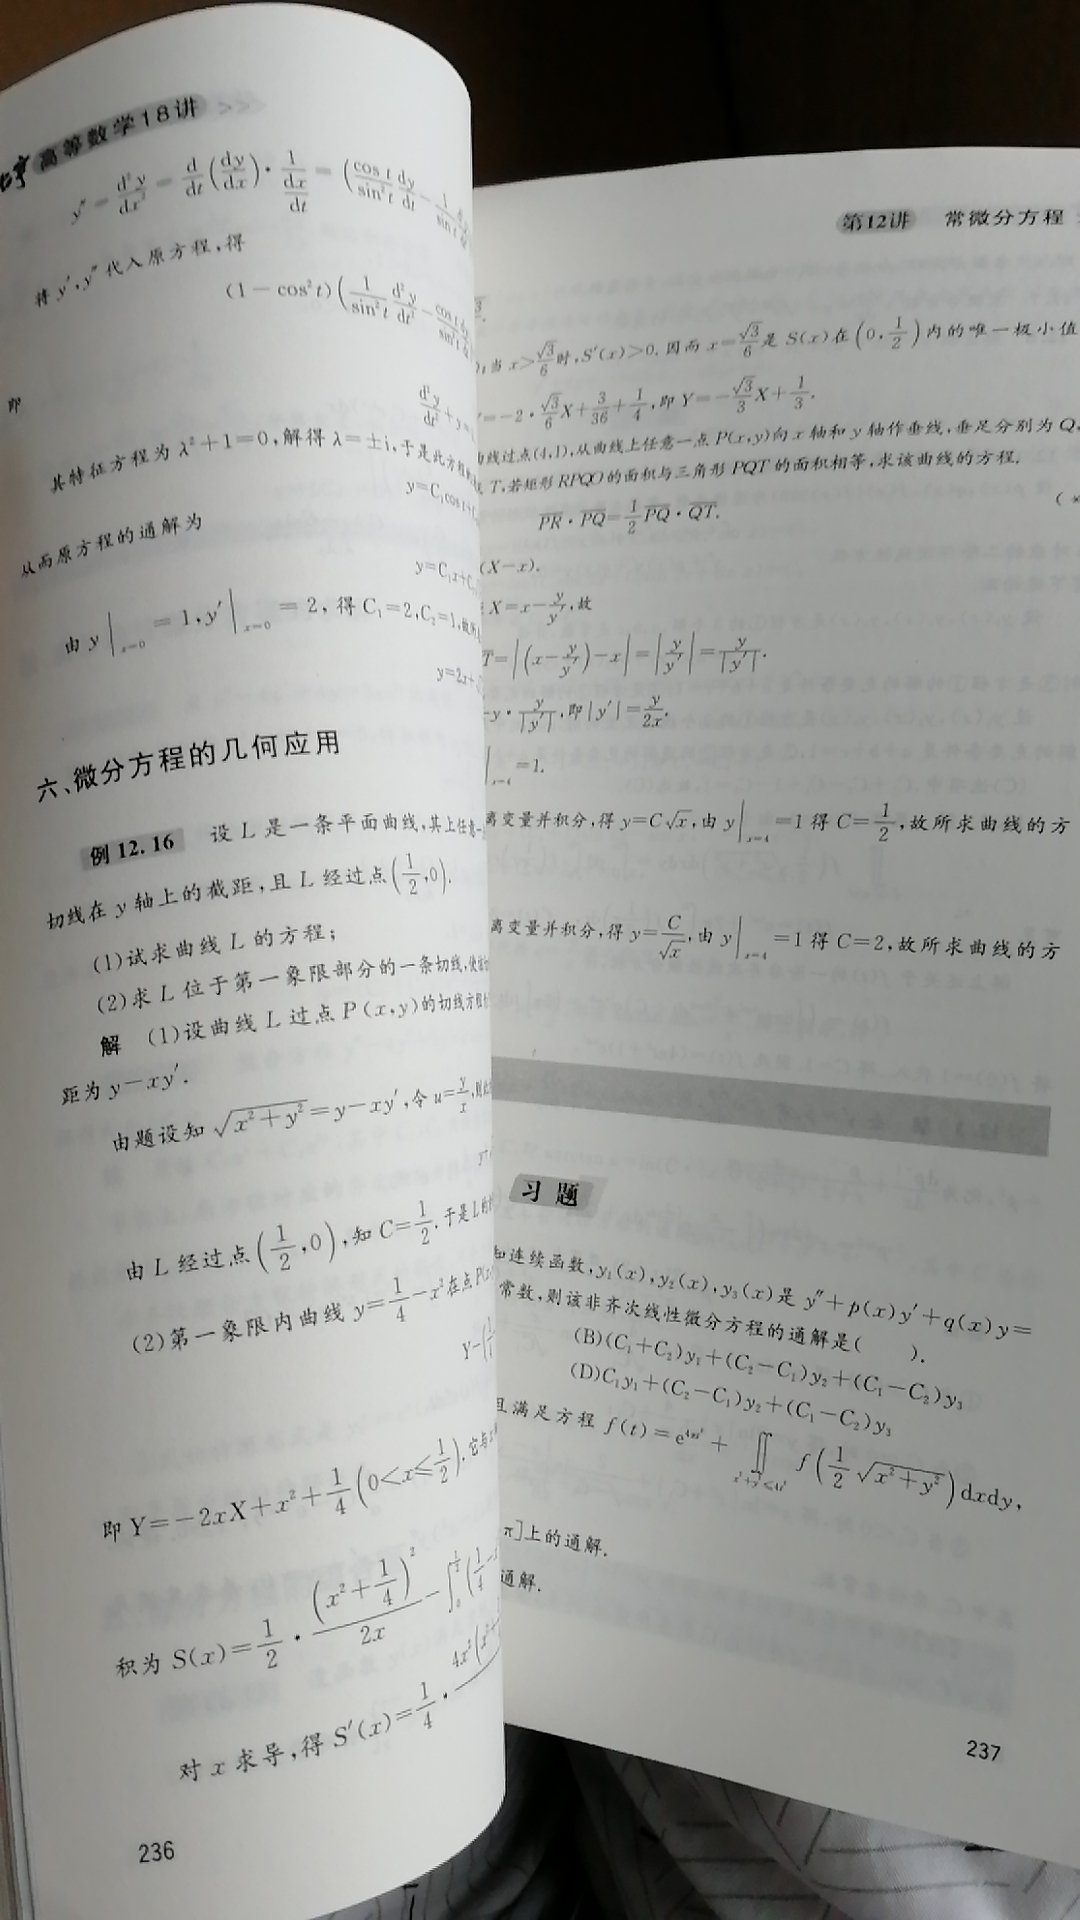 高等数学18讲
y″=d²y/dx²=d/dt(dy/dx)·1/(dx/dt)=(cos t/sin²t dy/dt-
将 y′,y″代入原方程,得
(1-cos²t)(1/sin²t d²y/dt²-
即
d²y/dt²+y=
其特征方程为 λ²+1=0,解得 λ=±i,于是此方程
y=C₁cos t+
从而原方程的通解为
y=C₁x+C
由 y|ₓ₌₀=1,y′|ₓ₌₀=2,得 C₁=2,C₂=1,
y=2x+
六、微分方程的几何应用
例 12.16 设 L 是一条平面曲线,其上任意一
切线在 y 轴上的截距,且 L 经过点(1/2,0).
(1)试求曲线 L 的方程;
(2)求 L 位于第一象限部分的一条切线,使
解 (1)设曲线 L 过点 P(x,y)的切线方程
距为 y-xy′.
由题设知 √(x²+y²)=y-xy′,令 u=y/x,
由 L 经过点(1/2,0),知 C=1/2.于是L的
(2)第一象限内曲线 y=1/4-x²在点P(x
即 Y=-2xX+x²+1/4(0<x≤1/2).它与
积为 S(x)=1/2·(x²+1/4)²/2x-∫₀^(1/2)(1/4-
对 x 求导,得 S′(x)=1/4·4x²(x²+
236
第12讲 常微分方程
当 x>√3/6时,S′(x)>0.因而 x=√3/6是 S(x)在(0,1/2)内的唯一极小值
=-2·√3/6X+3/36+1/4,即 Y=-√3/3X+1/3.
线过点(4,1),从曲线上任意一点 P(x,y)向 x 轴和 y 轴作垂线,垂足分别为 Q,
T,若矩形 RPQO 的面积与三角形 PQT 的面积相等,求该曲线的方程.
PR·PQ=1/2PQ·QT. (
(X-x).
X=x-y/y′,故
T=|(x-y/y′)-x|=|y/y′|=y/|y′|.
y·y/|y′|,即|y′|=y/2x.
|ₓ₌₄=1.
离变量并积分,得 y=C√x,由 y|ₓ₌₄=1 得 C=1/2,故所求曲线的方
离变量并积分,得 y=C/√x,由 y|ₓ₌₄=1 得 C=2,故所求曲线的方
习题
知连续函数,y₁(x),y₂(x),y₃(x)是 y″+p(x)y′+q(x)y=
常数,则该非齐次线性微分方程的通解是( ).
(B)(C₁+C₂)y₁+(C₂-C₁)y₂+(C₁-C₂)y₃
(D)C₁y₁+(C₂-C₁)y₂+(C₁-C₂)y₃
且满足方程 f(t)=e^(4πt²)+∬_(x²+y²≤4t²) f(1/2√(x²+y²))dxdy,
π]上的通解.
通解.
237